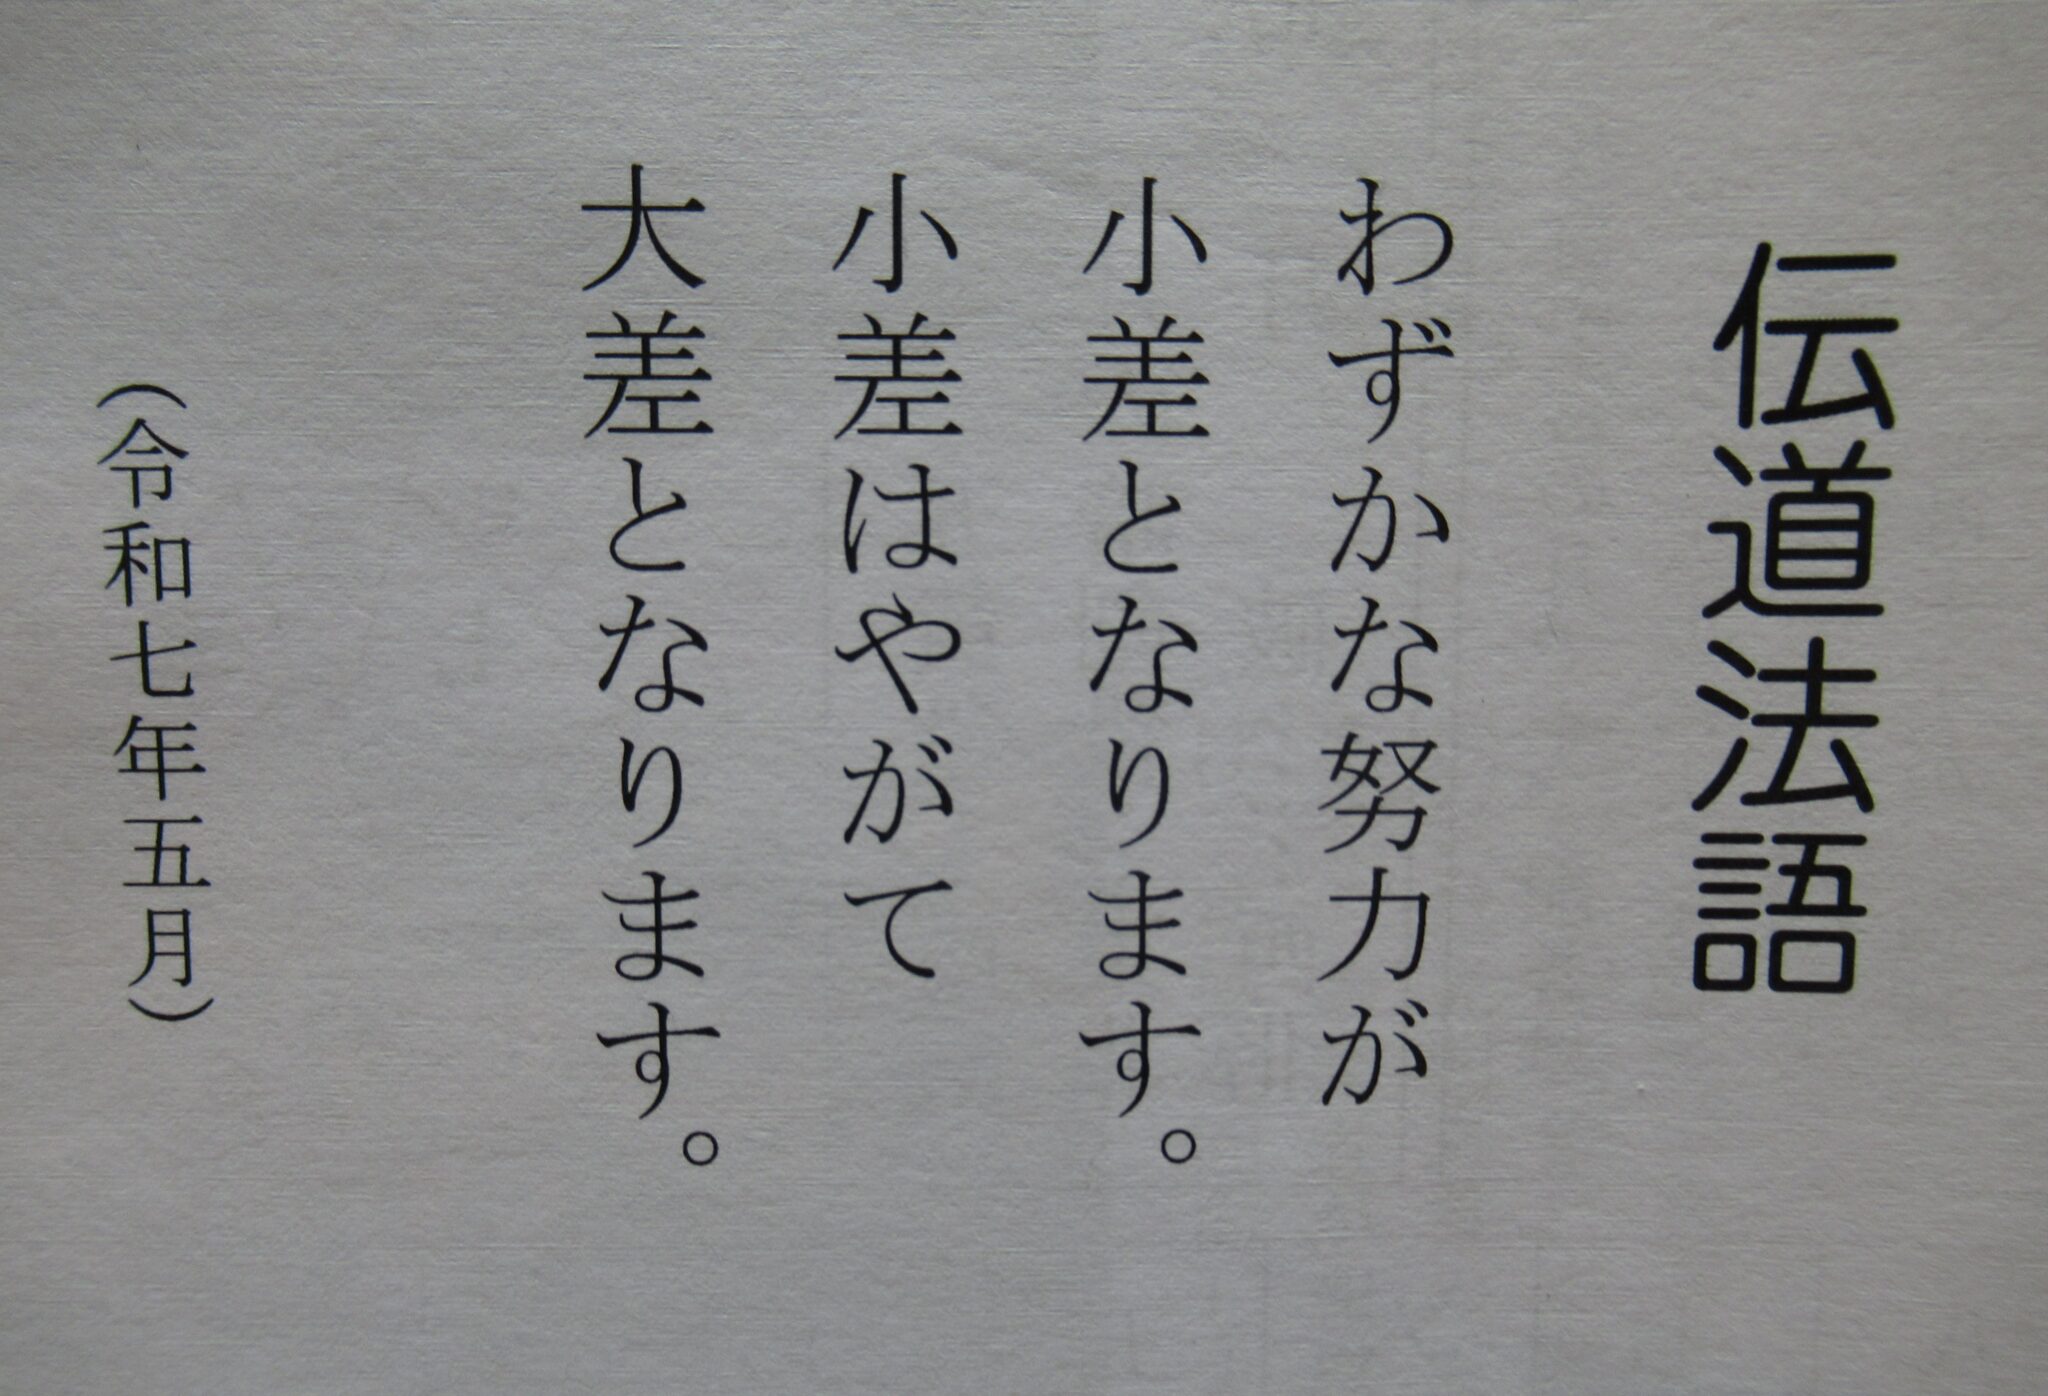 伝道法語
わずかな努力が
小差となります。
小差はやがて
大差となります。
（令和七年五月）